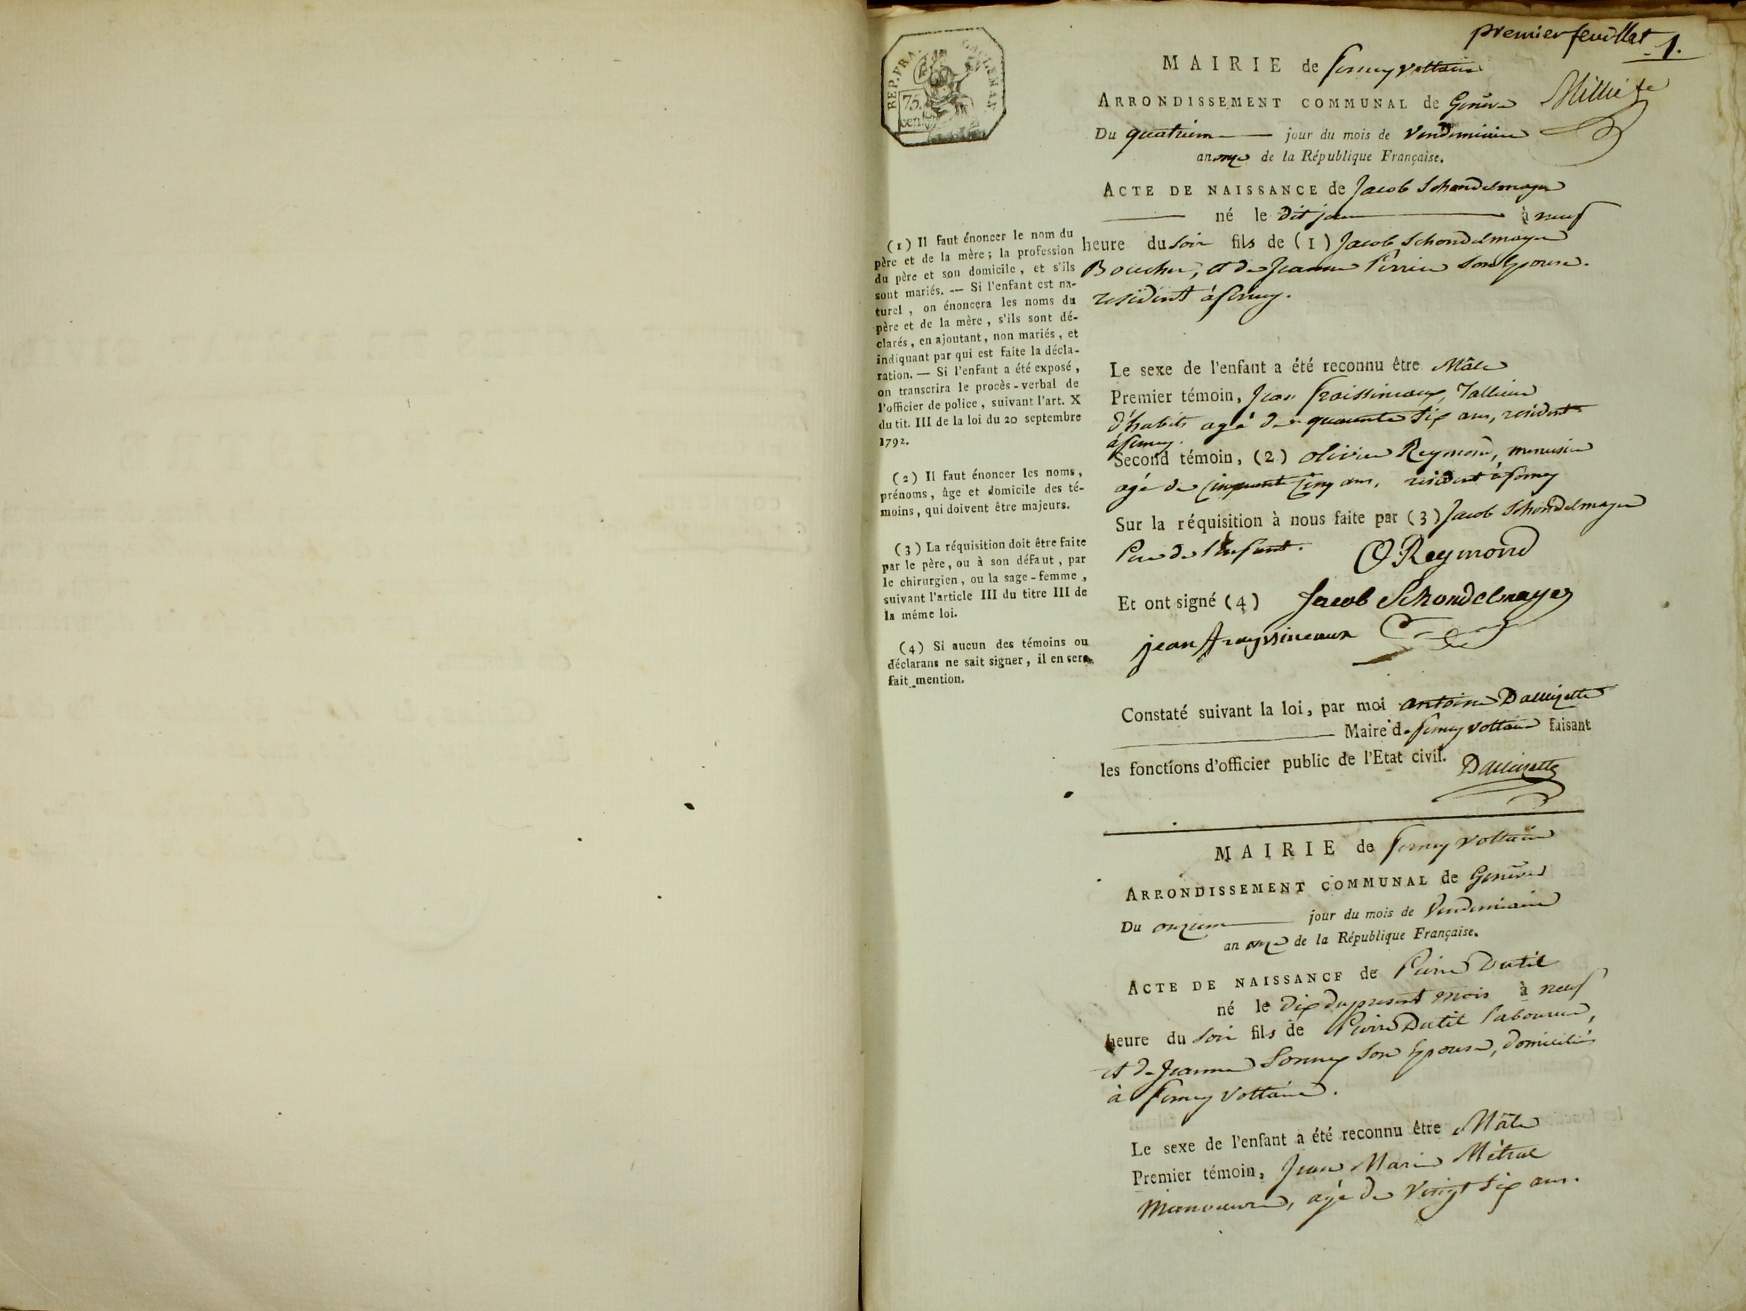 premier feuillet 1.
REP. FRA.
75.
cent.
MAIRIE de ferney voltaire
ARRONDISSEMENT COMMUNAL de Genève
Du quatrieme jour du mois de Vendemiaire
an onze de la République Française.
ACTE DE NAISSANCE de Jacob Schondelmayer
né le dit jour à neuf
heure du soir fils de (1) Jacob Schondelmayer
Boucher, et de Jeanne Perrier son Epouse.
resident à ferney.
Le sexe de l'enfant a été reconnu être Mâle
Premier témoin, Jean fraissineaux, Tallieur
d'habits agé de quarante Six ans, resident
à ferney.
Second témoin, (2) olivier Reymond, menuisier
agé de Cinquante Cinq ans, resident à ferney
Sur la réquisition à nous faite par (3) Jacob Schondelmayer
Pere de l'Enfant.
O Reymond
Et ont signé (4) Jacob Schondelmayer
jean frayssineaux
Constaté suivant la loi, par moi antoine Dallizette
Maire de ferney voltaire faisant
les fonctions d'officier public de l'Etat civil. Dallizette
(1) Il faut énoncer le nom du
père et de la mère; la profession
du père et son domicile, et s'ils
sont mariés. — Si l'enfant est na-
turel, on énoncera les noms du
père et de la mère, s'ils sont dé-
clarés, en ajoutant, non mariés, et
indiquant par qui est faite la décla-
ration. — Si l'enfant a été exposé,
on transcrira le procès-verbal de
l'officier de police, suivant l'art. X
du tit. III de la loi du 20 septembre
1792.
(2) Il faut énoncer les noms,
prénoms, âge et domicile des té-
moins, qui doivent être majeurs.
(3) La réquisition doit être faite
par le père, ou à son défaut, par
le chirurgien, ou la sage-femme,
suivant l'article III du titre III de
la même loi.
(4) Si aucun des témoins ou
déclarans ne sait signer, il en sera
fait mention.
MAIRIE de ferney voltaire
ARRONDISSEMENT COMMUNAL de Genève
Du onzieme jour du mois de Vendemiaire
an onze de la République Française.
ACTE DE NAISSANCE de Pierre Dutil
né le dix du present mois à neuf
heure du soir fils de Pierre Dutil laboureur,
et de Jeanne son Epouse, domiciliés
à ferney Voltaire.
Le sexe de l'enfant a été reconnu être Mâle
Premier témoin, Jean Marie Métral
Manoeuvre, agé de Vingt Six ans.